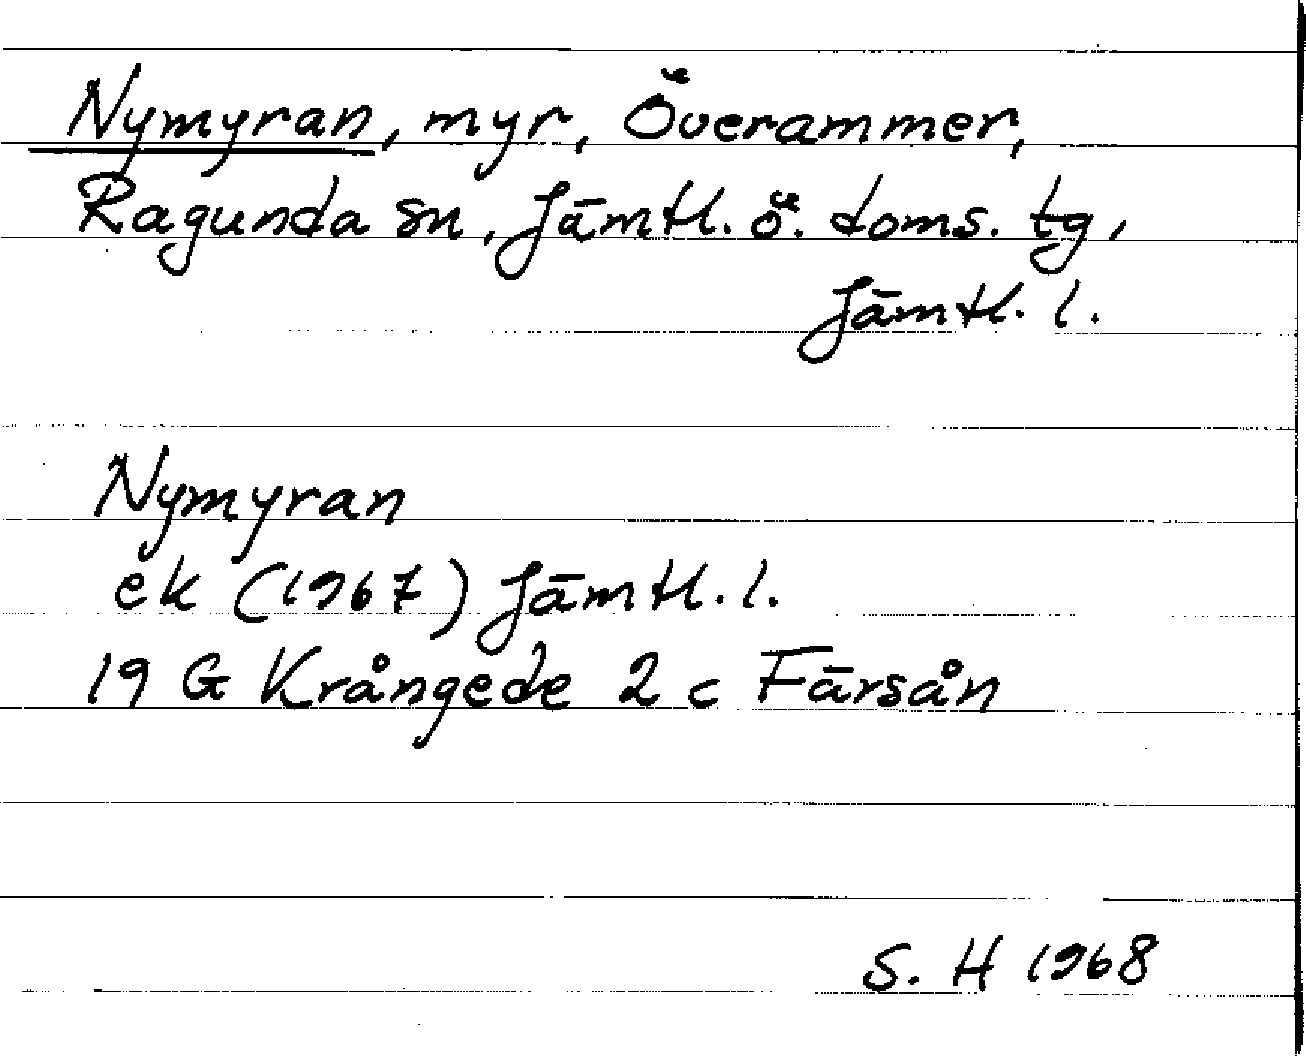 Nymyran, myr, Överammer,
Ragunda sn, Jämtl. ö. doms. tg,
Jämtl. l.
Nymyran
ek (1967) Jämtl. l.
19 G Krångede 2 c Färsån
S. H 1968